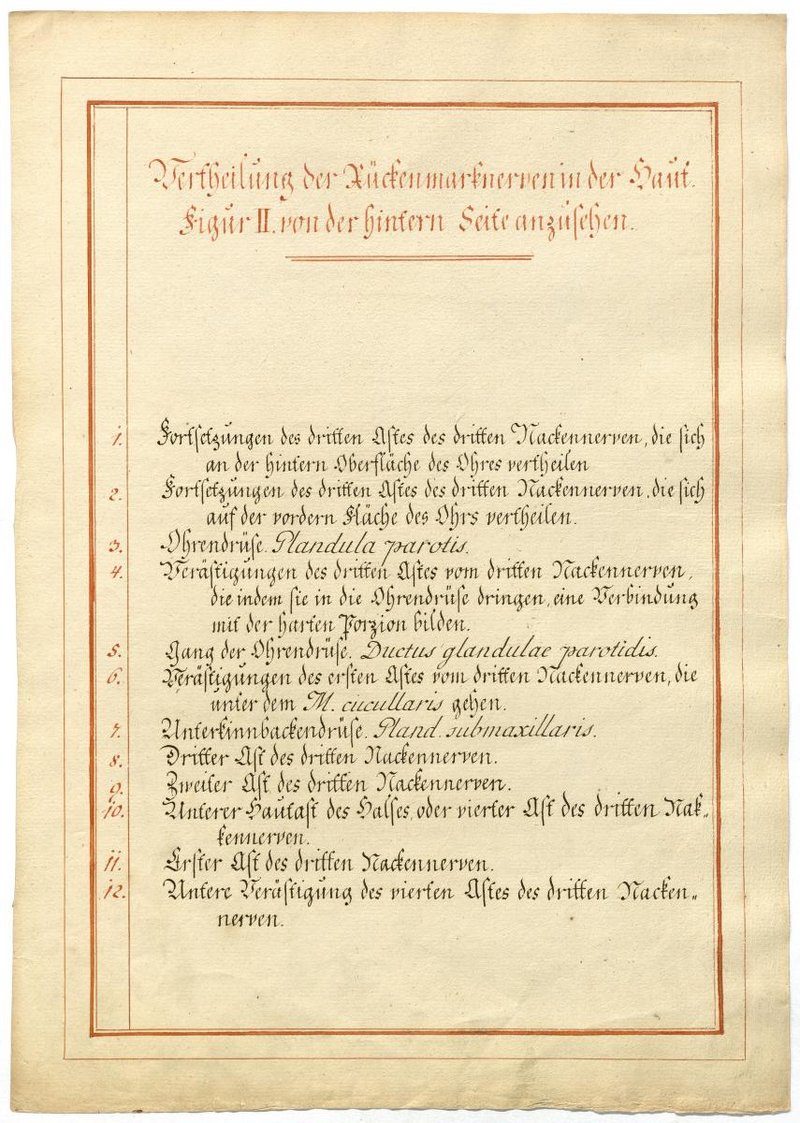 Vertheilung der Rückenmarknerven in der Haut.
Figur II. von der hintern Seite anzusehen.
1. Fortsetzungen des dritten Astes des dritten Nackennerven, die sich
an der hintern Oberfläche des Ohres vertheilen
2. Fortsetzungen des dritten Astes des dritten Nackennerven, die sich
auf der vordern Fläche des Ohrs vertheilen.
3. Ohrendrüse. Glandula parotis.
4. Verästigungen des dritten Astes vom dritten Nackennerven,
die indem sie in die Ohrendrüse dringen, eine Verbindung
mit der harten Porzion bilden.
5. Gang der Ohrendrüse. Ductus glandulae parotidis.
6. Verästigungen des ersten Astes vom dritten Nackennerven, die
unter dem M. cucullaris gehen.
7. Unterkinnbackendrüse. Gland. submaxillaris.
8. Dritter Ast des dritten Nackennerven.
9. Zweiter Ast des dritten Nackennerven.
10. Unterer Hautast des Halses, oder vierter Ast des dritten Nak„
kennerven.
11. Erster Ast des dritten Nackennerven.
12. Untere Verästigung des vierten Astes des dritten Nacken„
nerven.